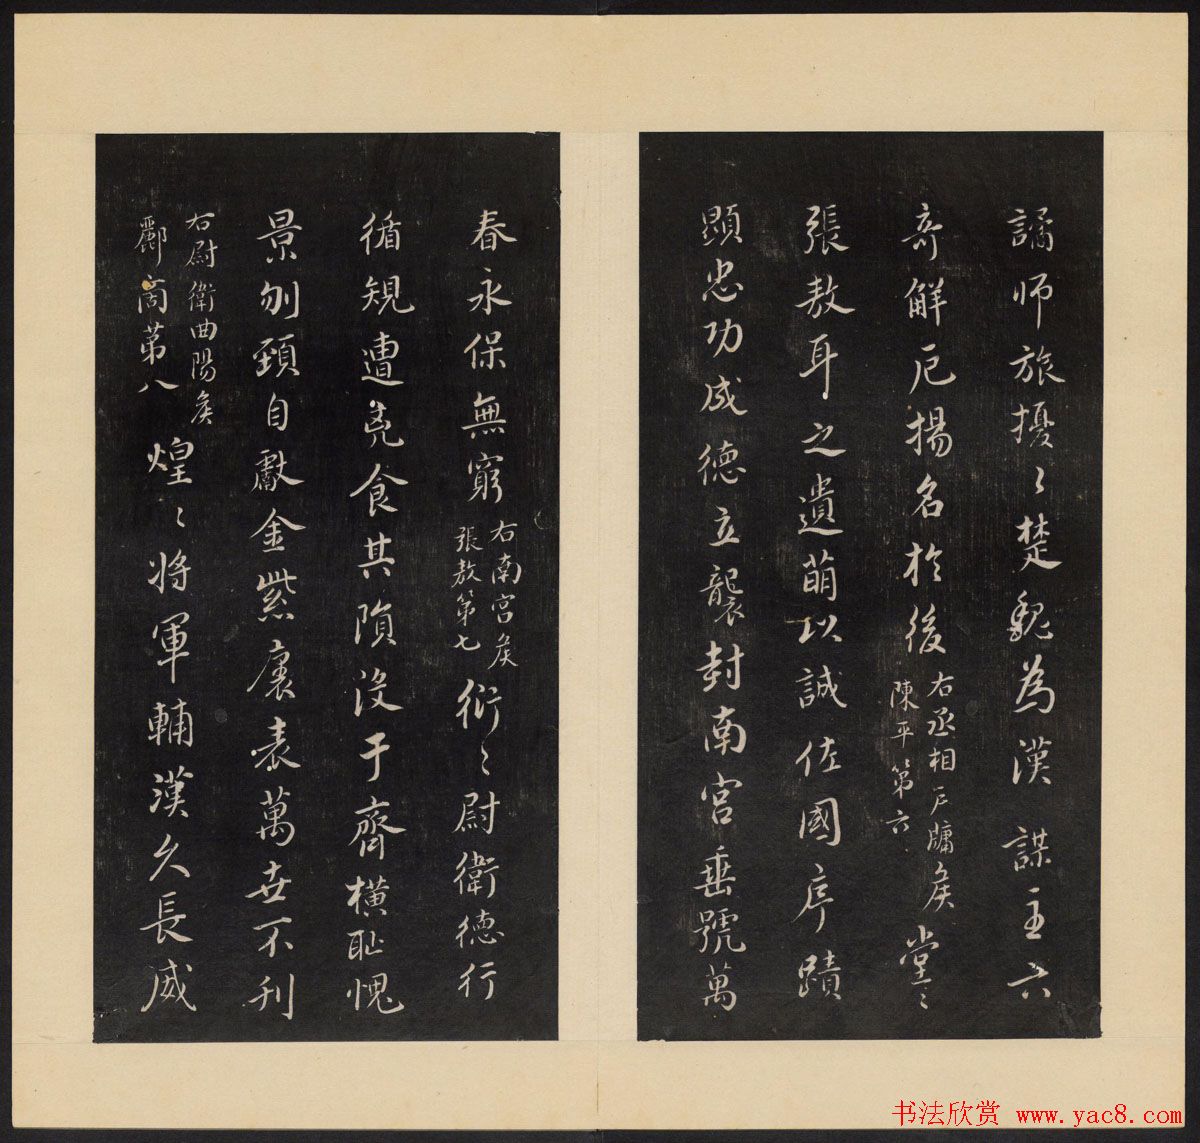 譎師旅擾〻楚魏為漢謀主六
奇解厄揚名於後 右丞相戶牖侯 陳平第六 堂〻
張敖耳之遺萌以誠佐國序蹟
顯忠功成德立襲封南宮垂號萬
春永保無窮 右南宮侯 張敖第七 衍〻尉衛德行
循規遭食其隕沒于齊橫恥愧
景刎頸自獻金紫褒表萬世不刊
右尉衛曲陽侯 酈商第八 煌〻將軍輔漢久長威
书法欣赏 www.yac8.com